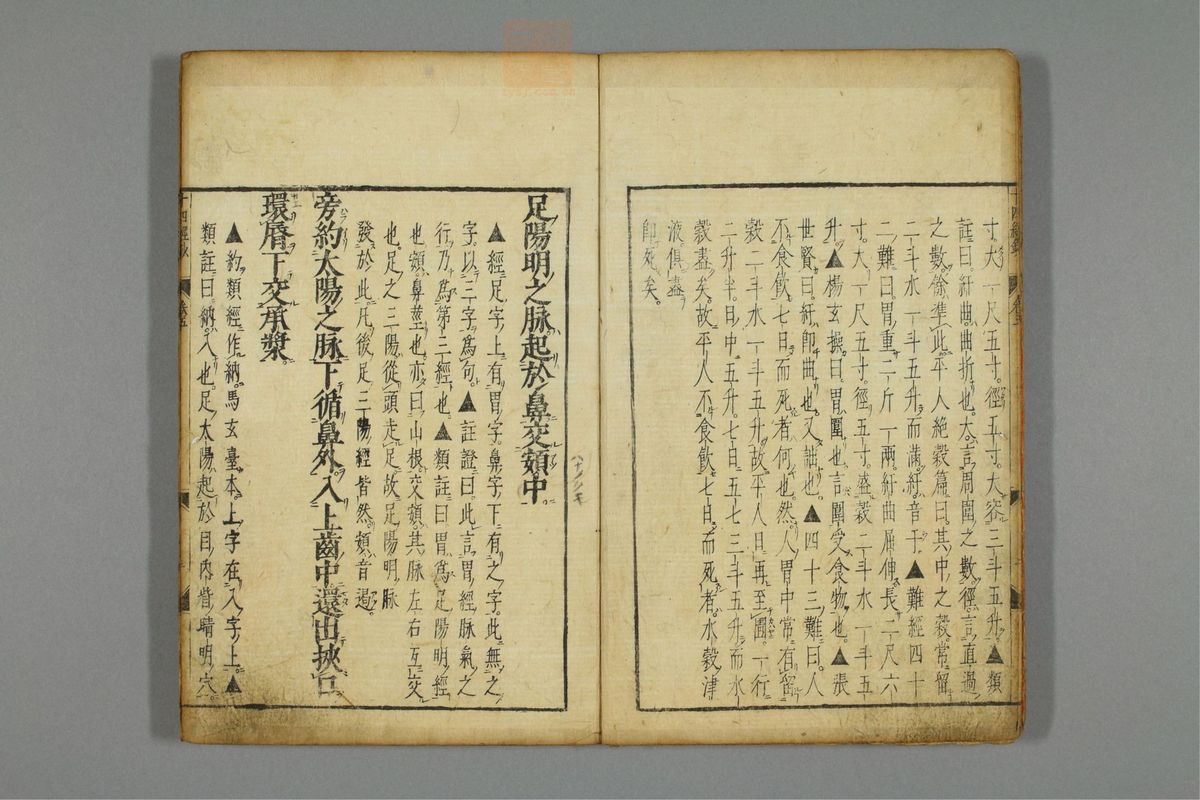 寸。大一尺五寸。徑五寸。大容三斗五升。▲類
註曰。紆曲。曲折也。大。言周圍之數。徑。言直過
之數。餘準此。平人絕穀篇曰。其中之穀。常留
二斗。水一斗五升而滿。紆音于。▲難經四十
二難曰。胃重二斤一兩。紆曲屈伸。長二尺六
寸。大一尺五寸。徑五寸。盛穀二斗。水一斗五
升。▲楊玄操曰。胃。圍也。言圍受食物也。▲張
世賢曰。紆即曲也。又詘也。▲四十三難曰。人
不食飲。七日而死者何也。然。人胃中常有留
穀二斗。水一斗五升。故平人日再至圊。一行
二升半。日中五升。七日。五七三斗五升。而水
穀盡矣。故平人不食飲七日而死者。水穀津
液俱盡。
即死矣。
足陽明之脉起於鼻交頞中。
▲經。足字上有胃字。鼻字下有之字。此無之
字。以三字為句。▲註證曰。此言胃經脉氣之
行。乃為第三經也。▲類註曰。胃為足陽明經
也。頞。鼻莖也。亦曰山根。交頞。其脉左右互交
也。足之三陽。從頭走足。故足陽明脉
發於此。凡後足三陽經皆然。頞音遏。
旁約太陽之脉下循鼻外入上齒中還出挾口
環脣下交承漿
▲約。類經作納。馬玄臺本。上字在入字上。▲
類註曰。納。入也。足太陽起於目內眥睛明穴。